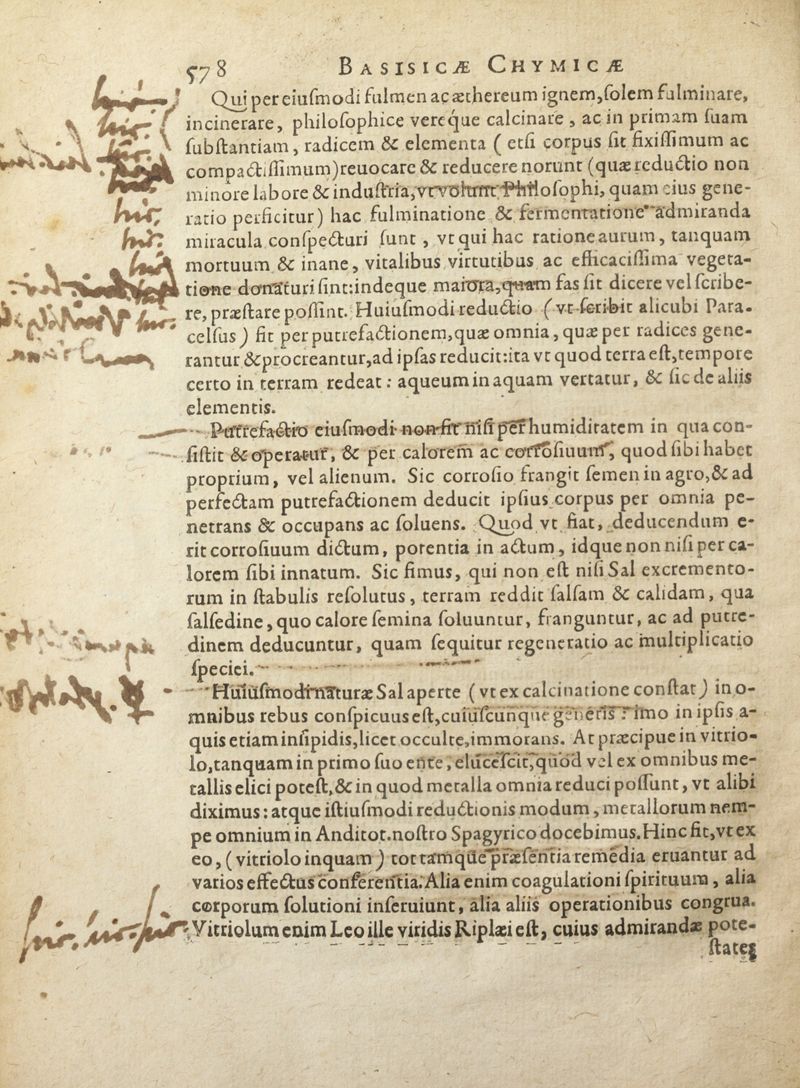 578 BASISICÆ CHYMICÆ
Qui per eiuſmodi fulmen ac æthereum ignem, ſolem fulminare,
incinerare, philoſophice veréque calcinare, ac in primam ſuam
ſubſtantiam, radicem & elementa ( etſi corpus ſit fixiſſimum ac
compactiſſimum) reuocare & reducere norunt (quæ reductio non
minore labore & induſtria, vt volunt Philoſophi, quam eius gene-
ratio perficitur) hac fulminatione & fermentatione admiranda
miracula conſpecturi ſunt, vt qui hac ratione aurum, tanquam
mortuum & inane, vitalibus virtutibus ac efficaciſſima vegeta-
tione donaturi ſint: indeque maiora, quam fas ſit dicere vel ſcribe-
re, præſtare poſſint. Huiuſmodi reductio (vt ſcribit alicubi Para-
celſus) fit per putrefactionem, quæ omnia, quæ per radices gene-
rantur & procreantur, ad ipſas reducit: ita vt quod terra eſt, tempore
certo in terram redeat: aqueum in aquam vertatur, & ſic de aliis
elementis.
Putrefactio eiuſmodi non fit niſi per humiditatem in qua con-
ſiſtit & operatur, & per calorem ac corroſiuum, quod ſibi habet
proprium, vel alienum. Sic corroſio frangit ſemen in agro, & ad
perfectam putrefactionem deducit ipſius corpus per omnia pe-
netrans & occupans ac ſoluens. Quod vt fiat, deducendum e-
rit corroſiuum dictum, potentia in actum, idque non niſi per ca-
lorem ſibi innatum. Sic fimus, qui non eſt niſi Sal excremento-
rum in ſtabulis reſolutus, terram reddit ſalſam & calidam, qua
ſalſedine, quo calore ſemina ſoluuntur, franguntur, ac ad putre-
dinem deducuntur, quam ſequitur regeneratio ac multiplicatio
ſpeciei.
Huiuſmodi naturæ Sal aperte (vt ex calcinatione conſtat) in o-
mnibus rebus conſpicuus eſt, cuiuſcunque generis: imo in ipſis a-
quis etiam inſipidis, licet occulte, immorans. At præcipue in vitrio-
lo, tanquam in primo ſuo ente, eluceſcit, quod vel ex omnibus me-
tallis elici poteſt, & in quod metalla omnia reduci poſſunt, vt alibi
diximus: atque iſtiuſmodi reductionis modum, metallorum nem-
pe omnium in Anditot. noſtro Spagyrico docebimus. Hinc fit, vt ex
eo, (vitriolo inquam) tot tamque præſentia remedia eruantur ad
varios effectus conferentia. Alia enim coagulationi ſpirituum, alia
corporum ſolutioni inſeruiunt, alia aliis operationibus congrua.
Vitriolum enim Leo ille viridis Riplæi eſt, cuius admirandæ pote-
ſtates